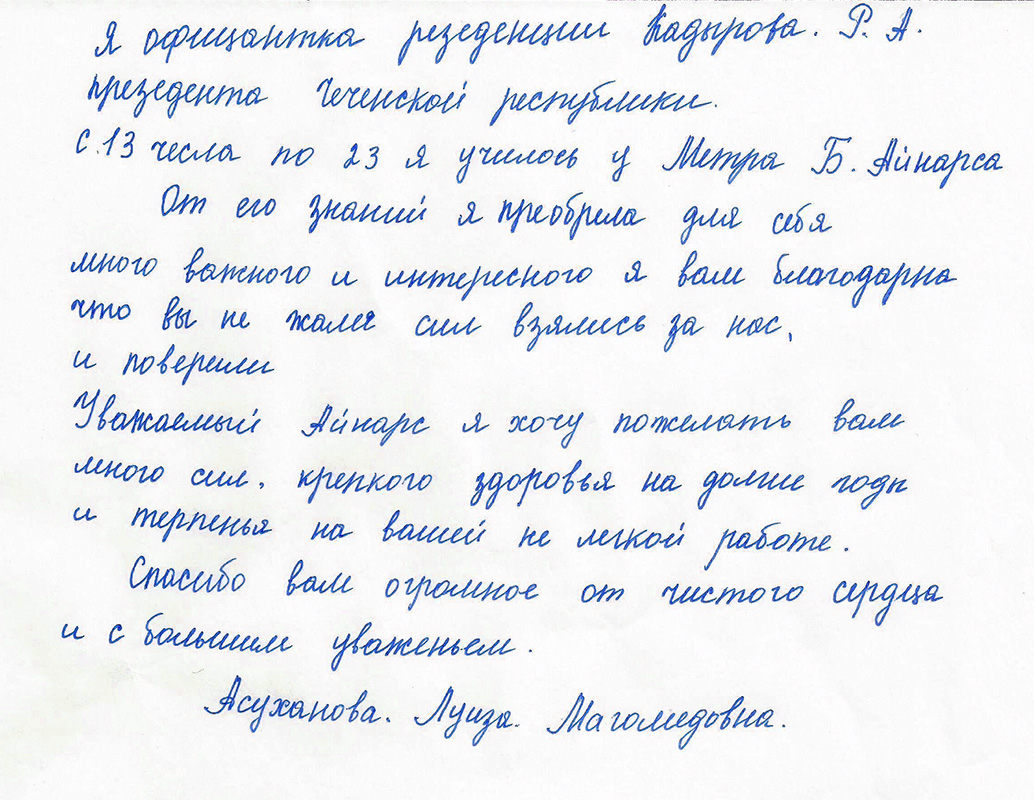 Я официантка резеденции Кадырова. Р. А.
презедента Чеченской республики.
с.13 чесла по 23 я училось у Метра Б. Айнарса
От его знаний я преобрела для себя
много важного и интересного я вам благодарна
что вы не жалея сил взялись за нас,
и поверили
Уважаемый Айнарс я хочу пожелать вам
много сил, крепкого здоровья на долгие годы
и терпенья на вашей не легкой работе.
Спасибо вам огромное от чистого сердца
и с большим уваженьем.
Асуханова. Луиза. Магомедовна.